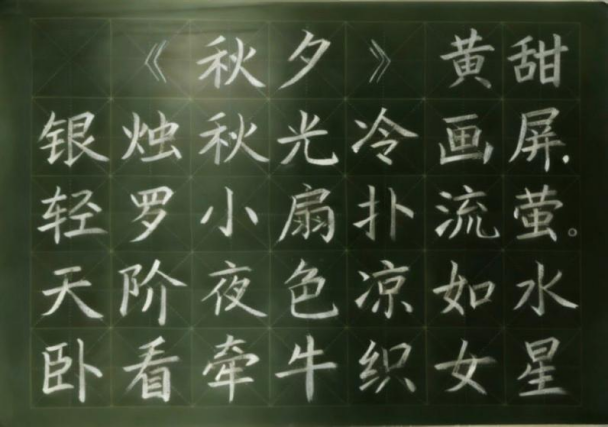 《秋夕》 黄甜
银烛秋光冷画屏,
轻罗小扇扑流萤。
天阶夜色凉如水
卧看牵牛织女星